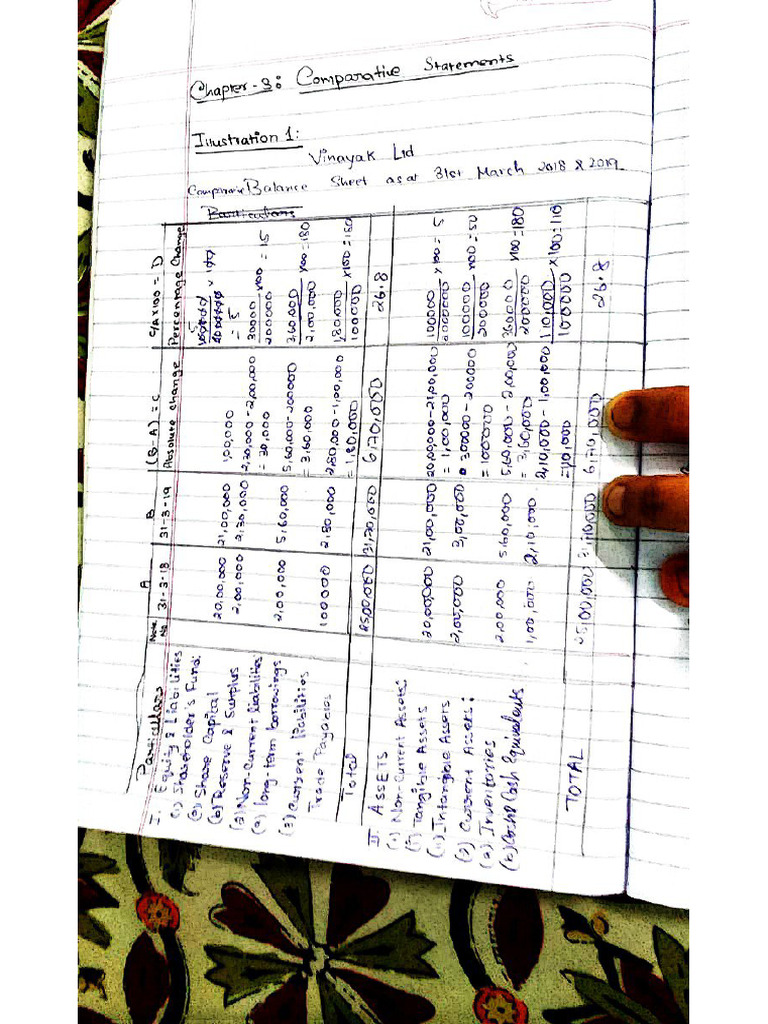 Chapter-3: Comparative Statements
Illustration 1:
Vinayak Ltd
Comparative Balance Sheet as at 31st March 2018 & 2019
Particulars
Particulars Note No. A 31-3-18 B 31-3-19 (B-A) = C Absolute change C/A x 100 = D Percentage Change
I. Equity & Liabilities
(1) Shareholder's Fund:
(a) Share Capital 20,00,000 21,00,000 1,00,000 = 5
(b) Reserve & Surplus 2,00,000 2,30,000 2,30,000-2,00,000 = 30,000 30000/200000 x100 = 15
(2) Non-current liabilities:
(a) long-term borrowings 2,00,000 5,60,000 5,60,000-200000 = 3,60,000 3,60,000/2,00,000 x100 = 180
(3) Current liabilities
Trade Payables 100000 2,80,000 2,80,000-1,00,000 = 1,80,000 1,80,000/100000 x100 = 180
Total 25,00,000 31,70,000 6,70,000 26.8
II. ASSETS
(1) Non-Current Assets:
(i) Tangible Assets 20,00,000 21,00,000 2000,000-21,00,000 = 1,00,000 100000/2000000 x100 = 5
(ii) Intangible Assets 2,00,000 3,00,000 300000-200000 = 100000 100000/200000 x100 = 50
(2) Current Assets:
(a) Inventories 2,00,000 5,60,000 5,60,000-2,00,000 = 3,60,000 360000/200000 x100 = 180
(b) Cash & Cash Equivalents 1,00,000 2,10,000 2,10,000-1,00,000 = 1,10,000 1,10,000/100000 x100 = 110
TOTAL 25,00,000 31,70,000 6,70,000 26.8